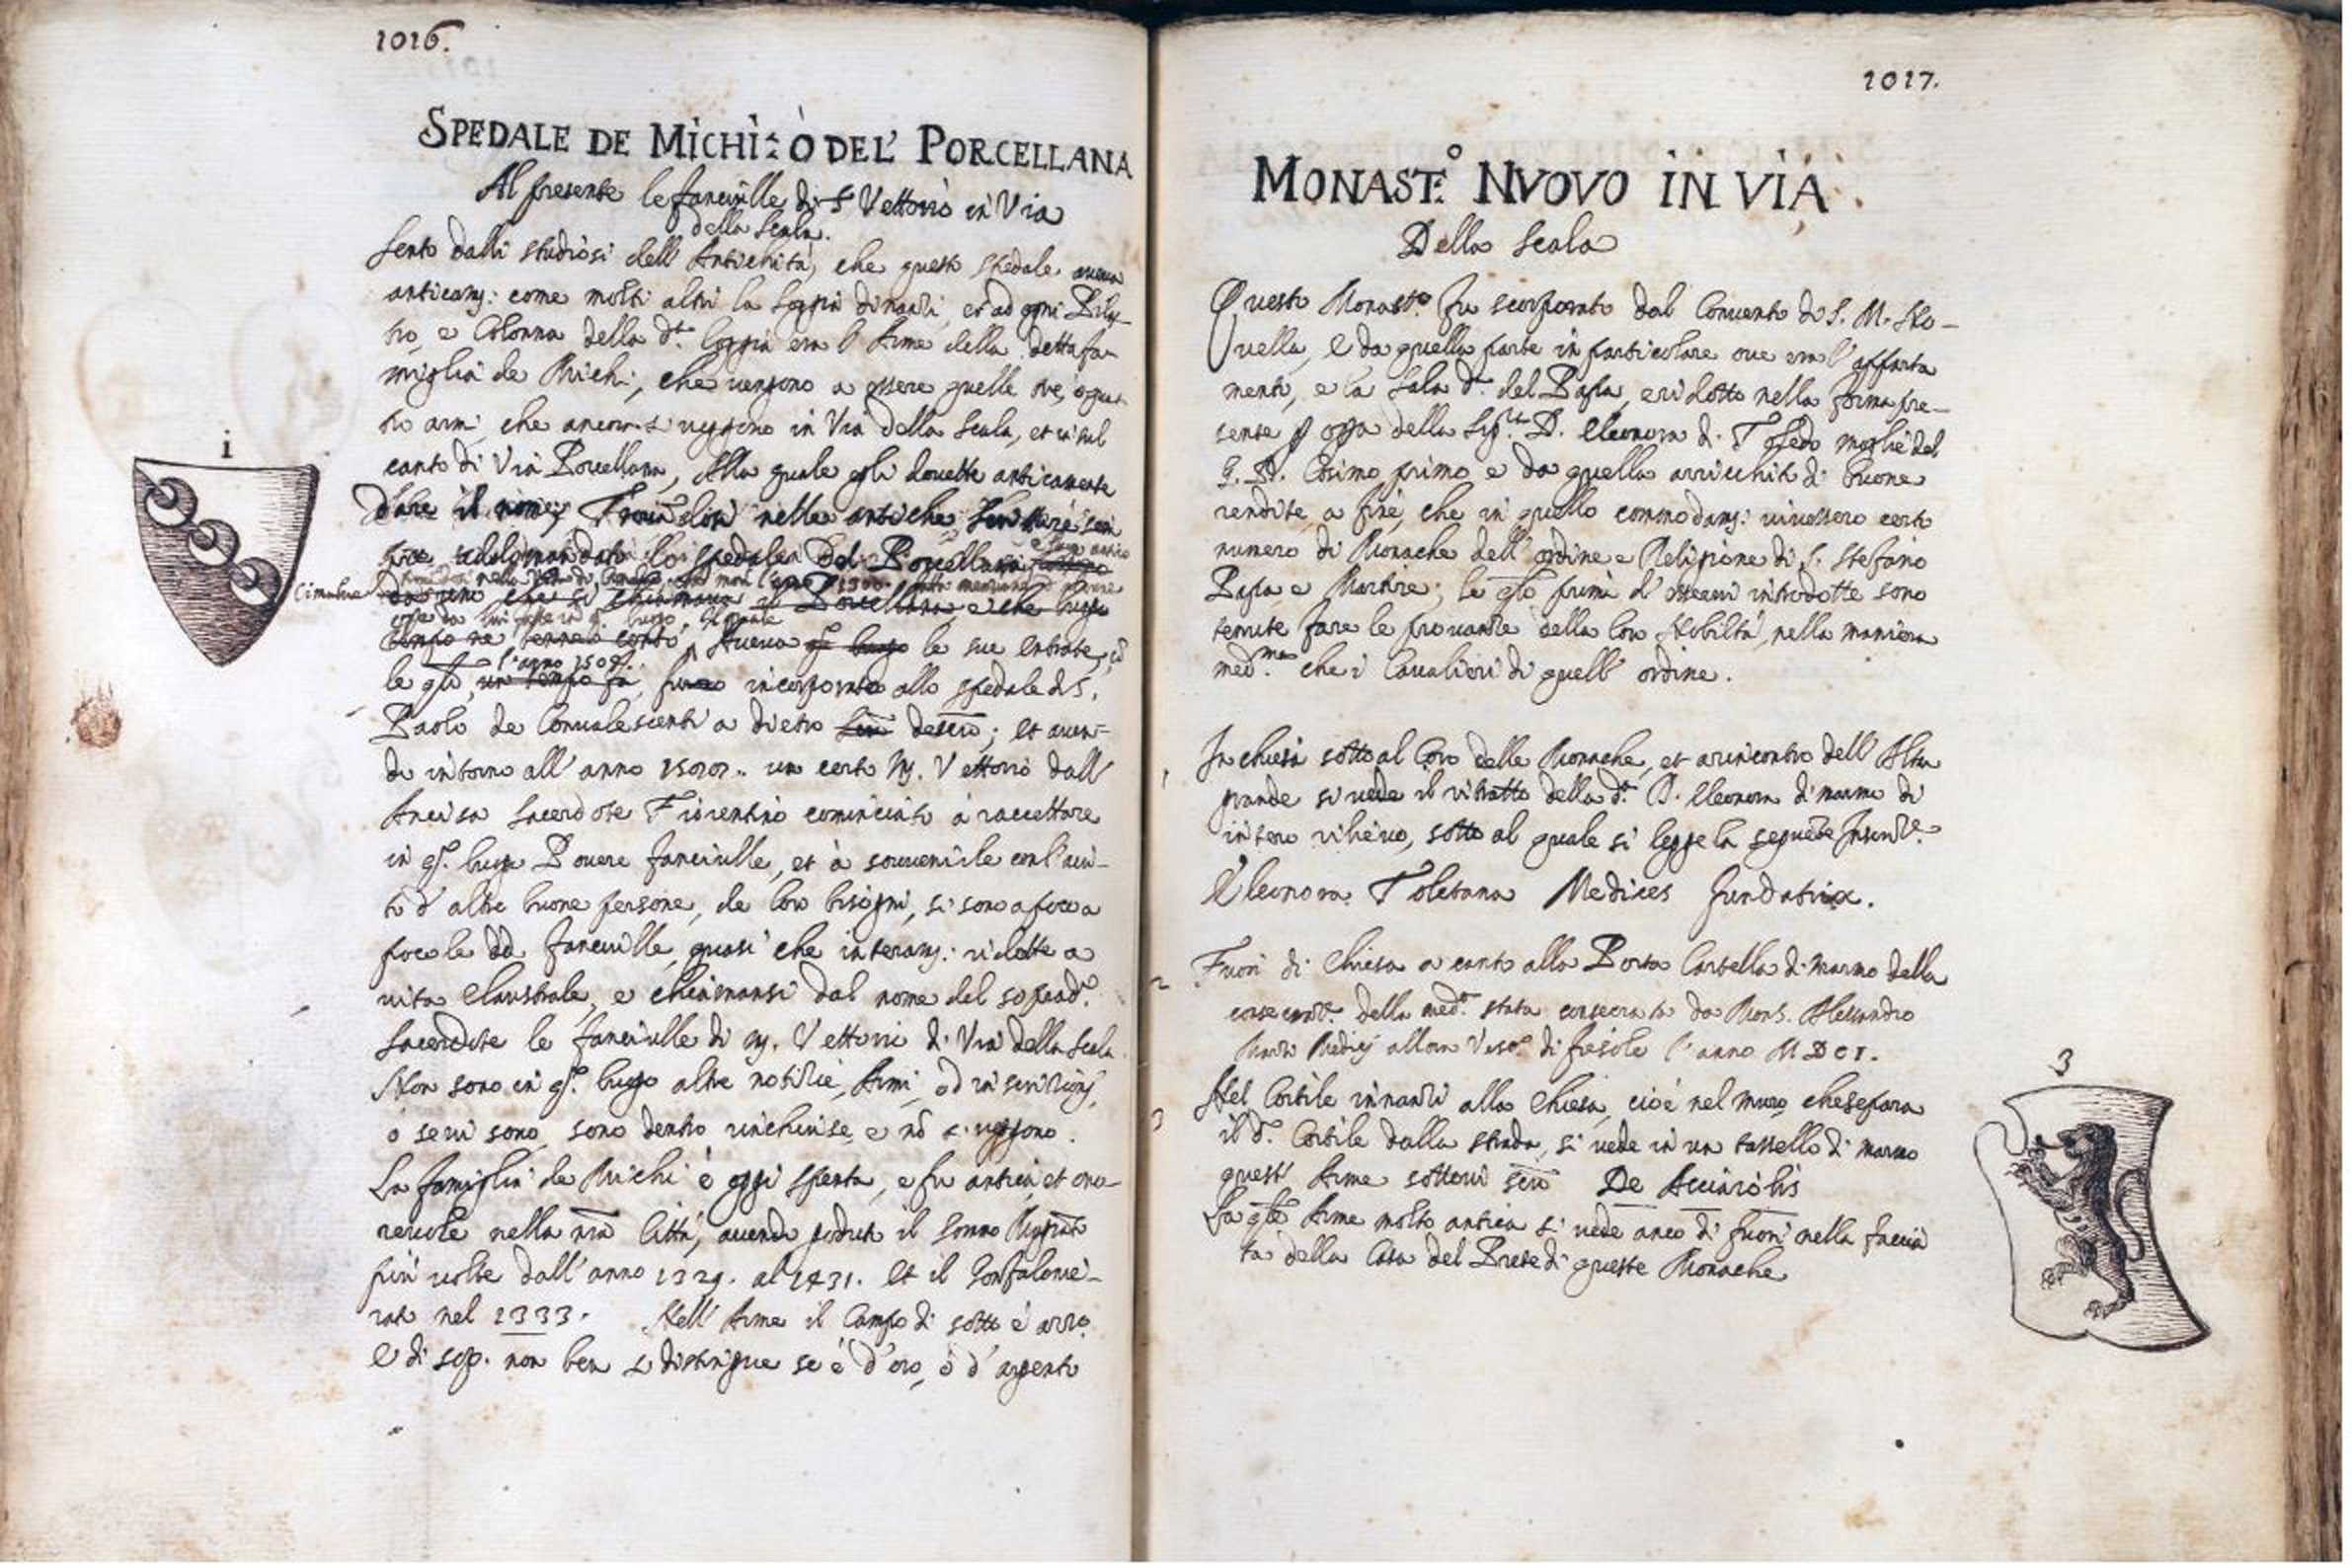 1016.
SPEDALE DE MICHI: Ò DEL' PORCELLANA
Al presente le fanciulle di S Vettorio in Via
della Scala.
Sento dalli studiosi dell' Antichità, che questo spedale aveva
anticam: come molti altri la loggia dinanzi, et ad ogni Pilas-
tro, e Colonna della d.ta loggia era l'Arme della detta fa-
miglia de Michi, che vengono a essere quelle tre, o quat-
tro armi, che ancora si veggono in Via della Scala, et in sul
canto di Via Porcellana, alla quale gli dovette anticamente
dare il nome,
lo spedale del Porcellana
i
Cimabue
che si chiamava il Porcellana, e che
Aveva le sue entrate,
l'anno 1504.
le qli, un tempo fa, incorporate allo spedale di S.
Paolo de Convalescenti a dietro descro; et aven-
do intorno all'anno un certo M. Vettorio dall'
Ancisa sacerdote Fiorentino cominciato à raccettare
in q.to luogo Povere fanciulle, et à sovvenirle con l'aiu-
to d'altre buone persone, de loro bisogni, si sono a poco a
poco le dd. fanciulle, quasi che interam: ridotte a
vita Claustrale, e chiamansi dal nome del soprad.o
sacerdote le fanciulle di M. Vettorio di Via della Scala
Non sono in q.to luogo altre notizie, Armi, od inscrizioni,
ò se vi sono, sono dentro rinchiuse, e nō si veggono.
La famiglia de Michi è oggi spenta, e fu antica, et ono-
revole nella nrā Città, avendo goduto il sommo
più volte dall'anno 1329. al 1431. et il Gonfalonie-
rato nel 1333. Nell'Arme il Campo di sotto è azro.
e di sop. non ben si distingue se è d'oro, ò d'argento
1017.
MONAST:o NVOVO IN VIA.
Della Scala
Questo Monast.o fu scorporato dal Convento di S. M. No-
vella, e da quella parte in particolare ove era l'apparta
mento, e la Sala d.ta del Papa, e ridotto nella forma pre-
sente p opa della Sig.ra D. Eleonora di Toledo moglie del
G. D. Cosimo primo e da quella arricchito di buone
rendite, a fine, che in quello commodam: vivessero certo
numero di Monache dell'ordine e Religione di S. Stefano
Papa e Martire; le qli prima d'esservi introdotte sono
tenute fare le provanze della loro Nobiltà, nella maniera
med.ma che i Cavalieri di quell'ordine.
1 In chiesa sotto al Coro delle Monache, et arincontro dell'Altar
grande si vede il ritratto della d.ta D. Eleonora di marmo di
intero rilievo, sotto al quale si legge la seguēte Inscriz.e
Eleonora Toletana Medices fundatrix.
2 Fuori di Chiesa a canto alla Porta Cartella di marmo della
consecraz.e della med.a stata consecrata da Mons. Alessandro
Marzi Medici allora Vesc.o di fiesole l'anno MDCI.
3 Nel Cortile innanzi alla Chiesa, cioè nel muro, che separa
il d.o Cortile dalla strada, si vede in un tassello di marmo
quest' Arme sottovi scrō De Acciaiolis
La qle Arme molto antica si vede anco di fuori nella faccia
ta della Casa del Prete di queste Monache
3